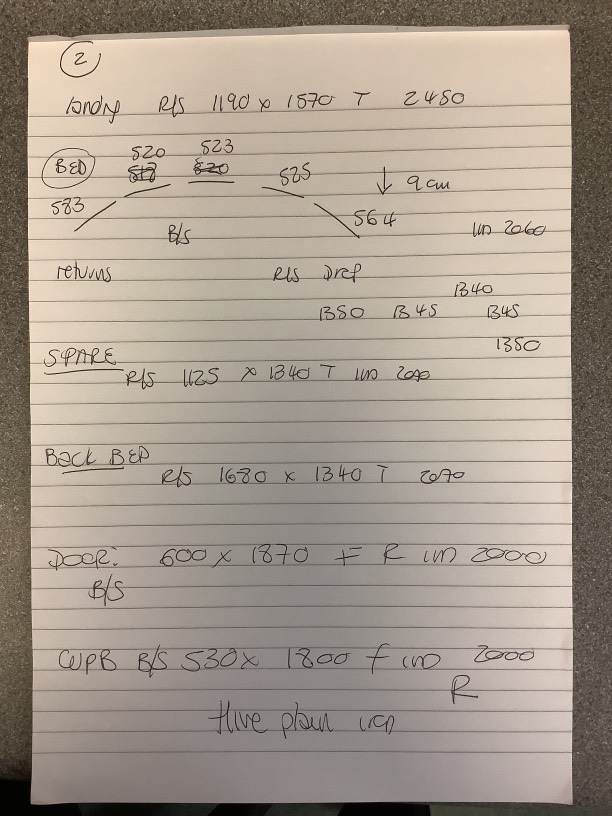 2
landing R/S 1190 x 1570 T 2450
BED 520 523
518 520 525 ↓ 9cm
583 564
B/S un 2060
returns R/S Drop
1340
1350 1345 1345
1350
SPARE
R/S 1125 x 1340 T un 2090
Back BED
R/S 1680 x 1340 T 2070
Door: 600 x 1870 F R un 2000
B/S
CUPB B/S 530 x 1800 f un 2000
R
Hive plain